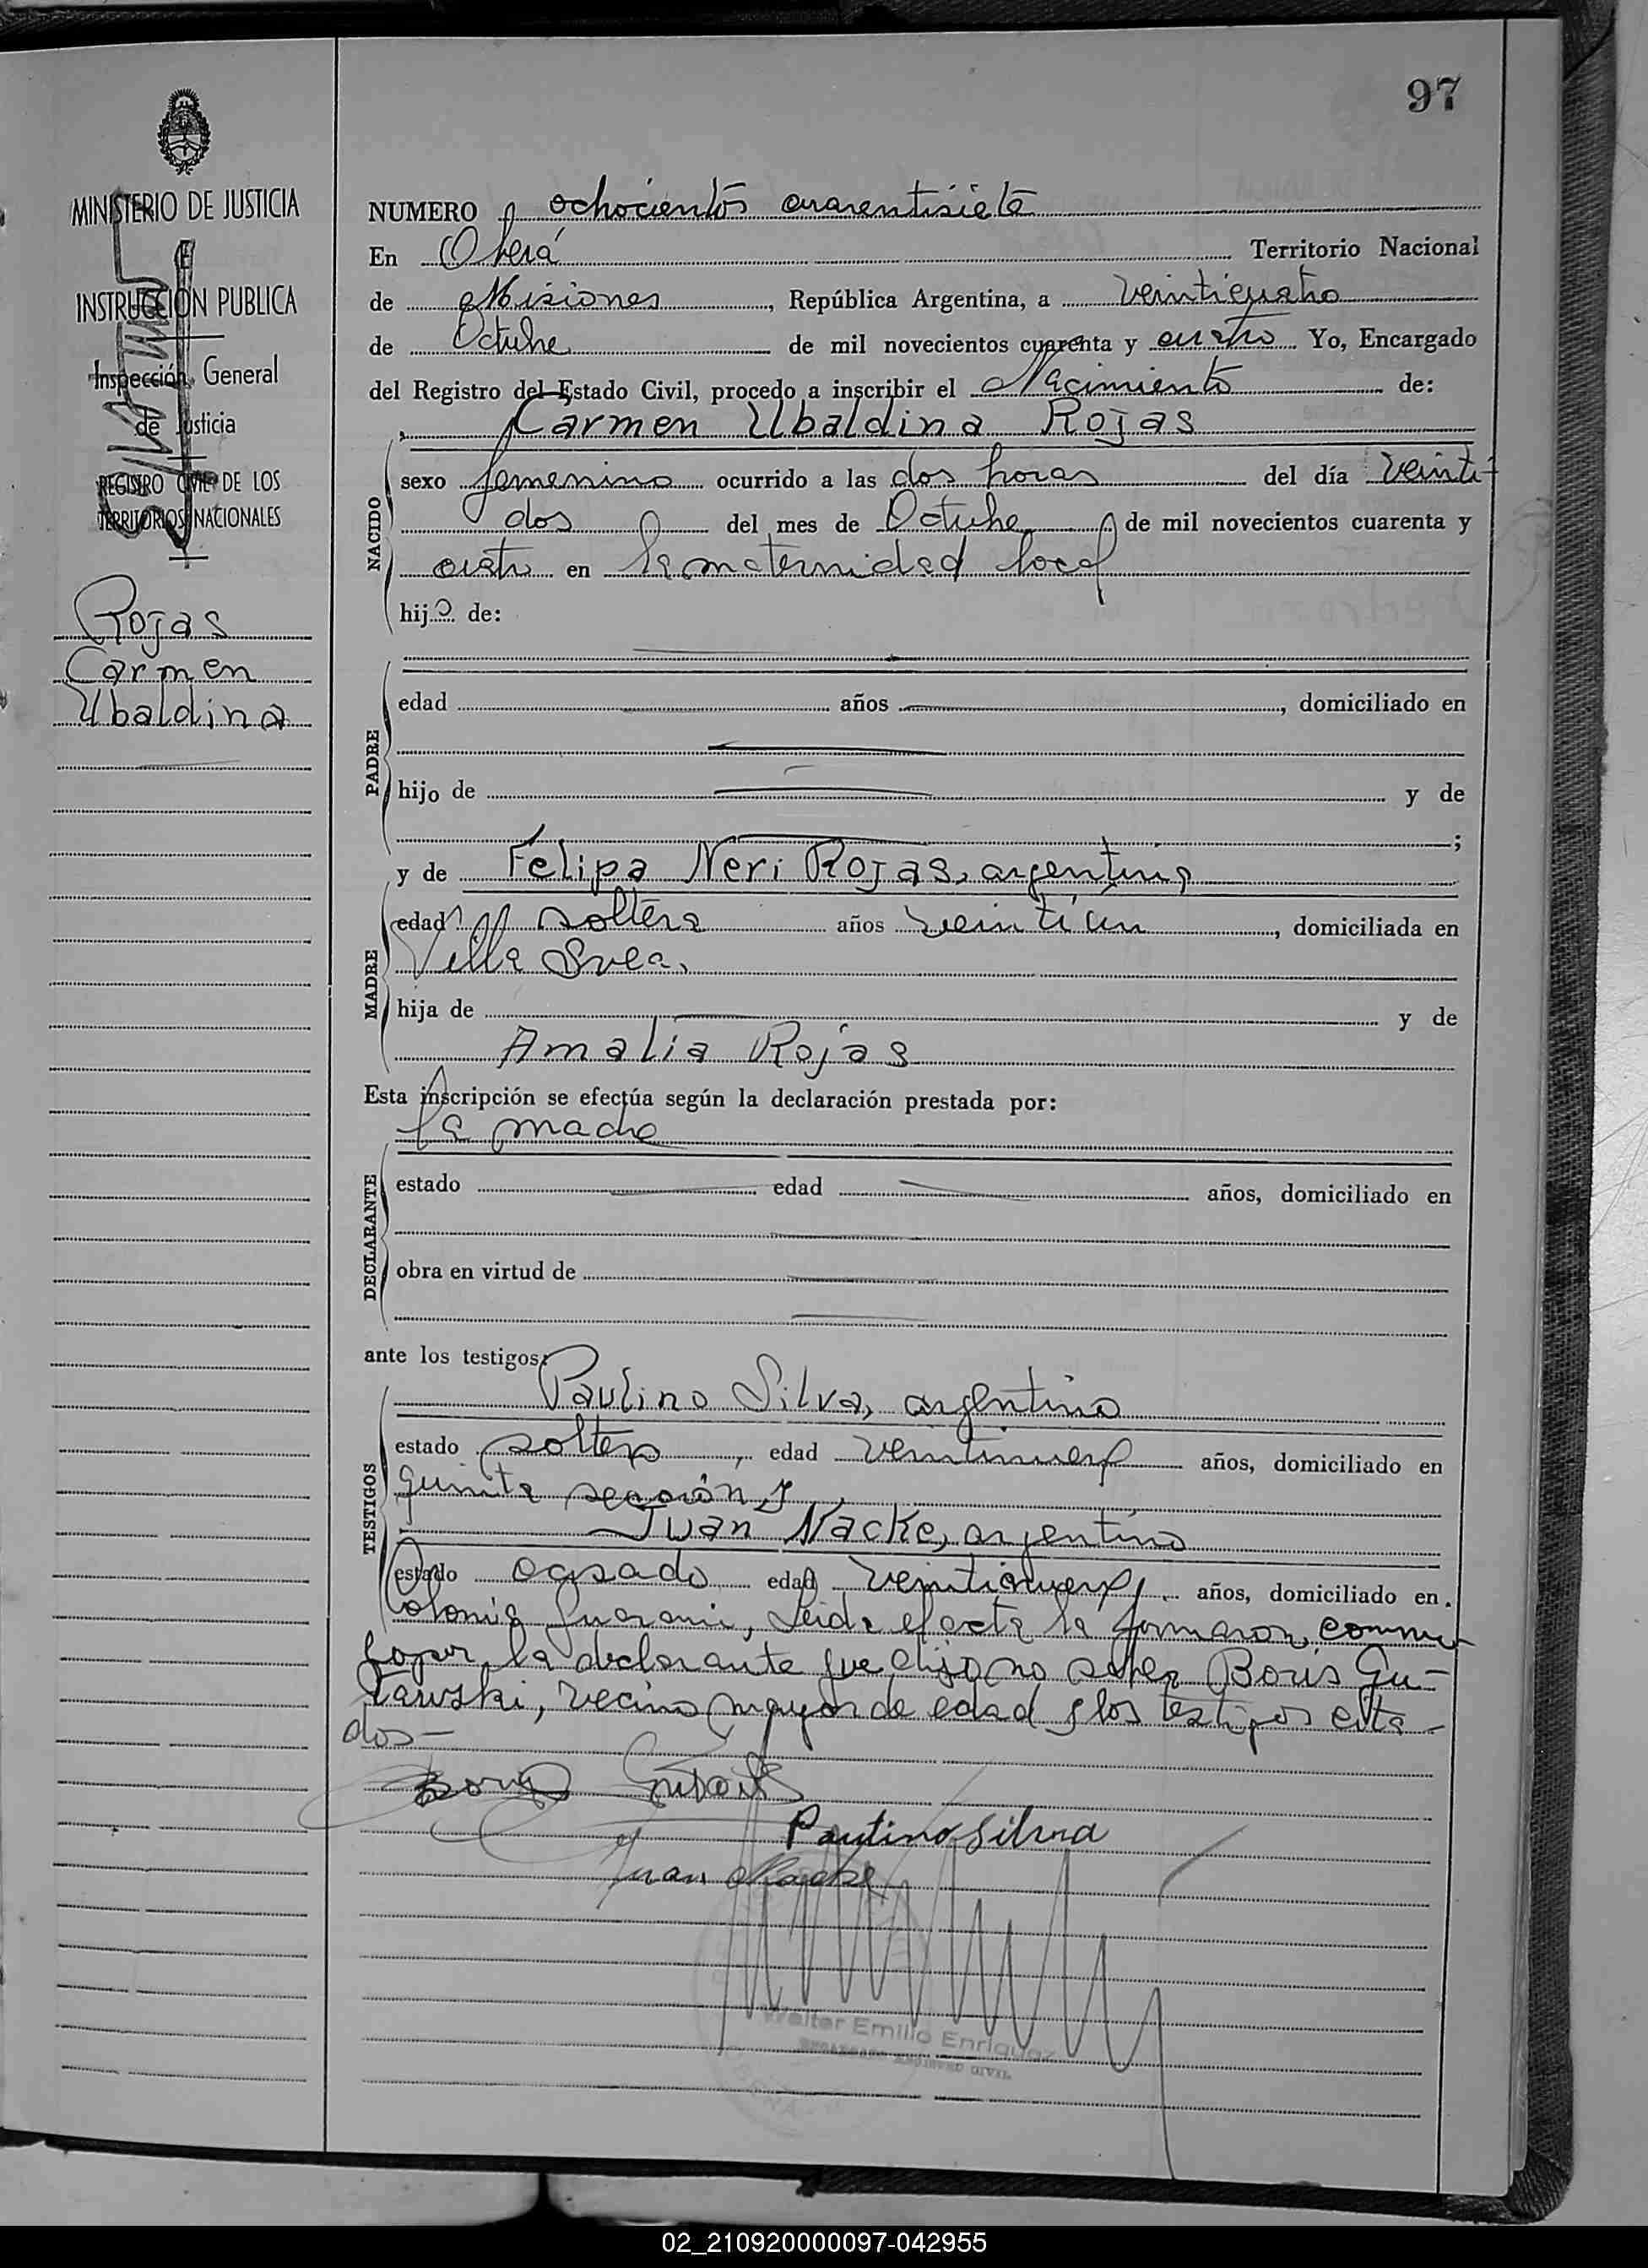 97
MINISTERIO DE JUSTICIA
E
INSTRUCCION PUBLICA
Inspección General
de Justicia
REGISTRO CIVIL DE LOS
TERRITORIOS NACIONALES
Rojas
Carmen
Ubaldina
NUMERO ochocientos cuarentisiete
En Oberá Territorio Nacional
de Misiones, República Argentina, a veinticuatro
de Octubre de mil novecientos cuarenta y cuatro Yo, Encargado
del Registro del Estado Civil, procedo a inscribir el Nacimiento de:
Carmen Ubaldina Rojas
NACIDO
sexo femenino ocurrido a las dos horas del día veinti-
dos del mes de Octubre de mil novecientos cuarenta y
cuatro en la maternidad local
hija de:
PADRE
edad años, domiciliado en
hijo de y de
;
y de Felipa Neri Rojas, argentina
MADRE
edad soltera años veintiun, domiciliada en
Villa Svea.
hija de y de
Amalia Rojas
Esta inscripción se efectúa según la declaración prestada por:
la madre
DECLARANTE
estado edad años, domiciliado en
obra en virtud de
ante los testigos:
Paulino Silva, argentino
TESTIGOS
estado soltero, edad años, domiciliado en
quinta sección y
Juan Nacke, argentino
estado casado edad años, domiciliado en
Colonia Guarani, Leida el acta la firmaron, conmi
la declarante que dijo no saber Boris Gu-
tawski, vecino mayor de edad y los testigos cita-
dos-
Boris
Paulino Silva
Juan Nacke
Walter Emilio Enriquez
ENCARGADO REGISTRO CIVIL
02_210920000097-042955